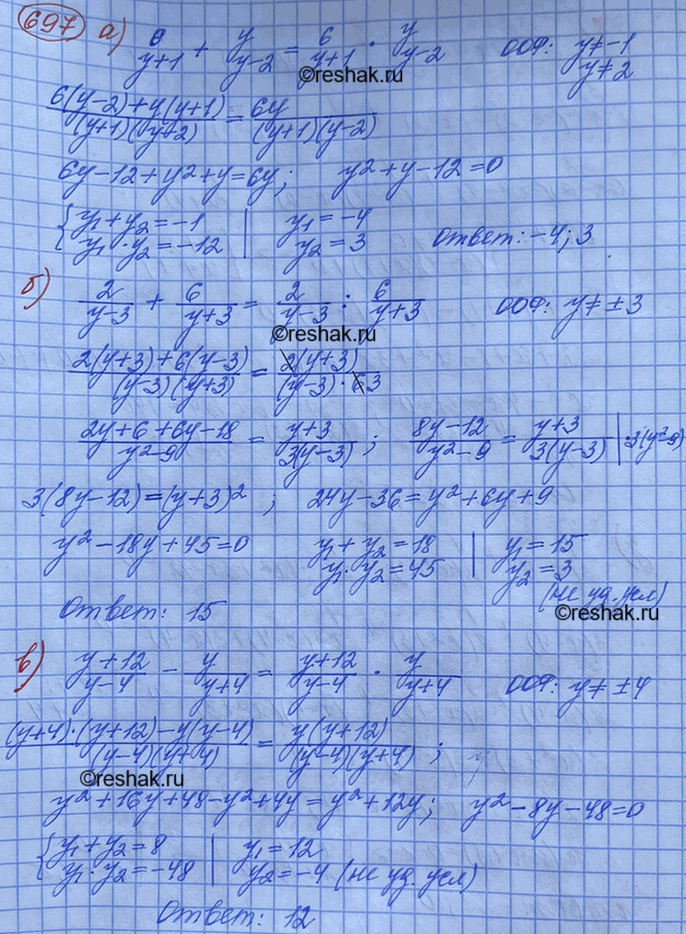 697 а) 6/(y+1) + y/(y-2) = 6/(y+1) · y/(y-2) ООФ: y≠-1
y≠2
©reshak.ru
(6(y-2)+y(y+1))/((y+1)(y+2)) = 6y/((y+1)(y-2))
6y-12+y²+y=6y; y²+y-12=0
{ y₁+y₂=-1 | y₁=-4
y₁·y₂=-12 | y₂=3 Ответ: -4; 3
б) 2/(y-3) + 6/(y+3) = 2/(y-3) : 6/(y+3) ООФ: y≠±3
©reshak.ru
(2(y+3)+6(y-3))/((y-3)(y+3)) = 2(y+3)/((y-3)·6 3)
(2y+6+6y-18)/(y²-9) = (y+3)/(3(y-3)); (8y-12)/(y²-9) = (y+3)/(3(y-3)) | ·3(y²-9)
3(8y-12)=(y+3)²; 24y-36=y²+6y+9
y²-18y+45=0 y₁+y₂=18 | y₁=15
y₁·y₂=45 | y₂=3
(не уд. усл)
©reshak.ru
Ответ: 15
в) (y+12)/(y-4) - y/(y+4) = (y+12)/(y-4) · y/(y+4) ООФ: y≠±4
((y+4)·(y+12)-y(y-4))/((y-4)(y+4)) = y(y+12)/((y-4)(y+4));
©reshak.ru
y²+16y+48-y²+4y=y²+12y; y²-8y-48=0
{ y₁+y₂=8 | y₁=12
y₁·y₂=-48 | y₂=-4 (не уд. усл)
Ответ: 12